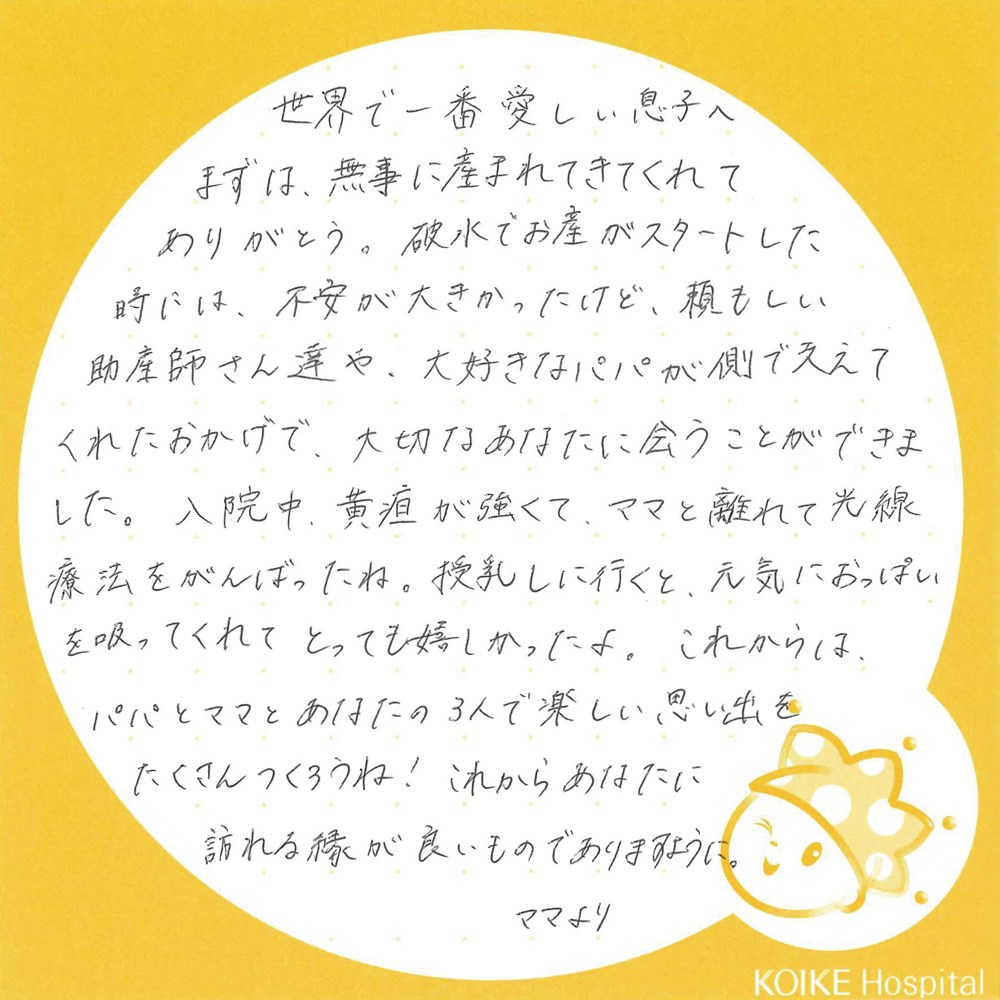 世界で一番愛しい息子へ
まずは、無事に産まれてきてくれて
ありがとう。破水でお産がスタートした
時には、不安が大きかったけど、頼もしい
助産師さん達や、大好きなパパが側で支えて
くれたおかげで、大切なあなたに会うことができま
した。入院中、黄疸が強くて、ママと離れて光線
療法をがんばったね。授乳しに行くと、元気におっぱい
を吸ってくれてとっても嬉しかったよ。これからは、
パパとママとあなたの3人で楽しい思い出を
たくさんつくろうね！これからあなたに
訪れる縁が良いものでありますように。
ママより
KOIKE Hospital